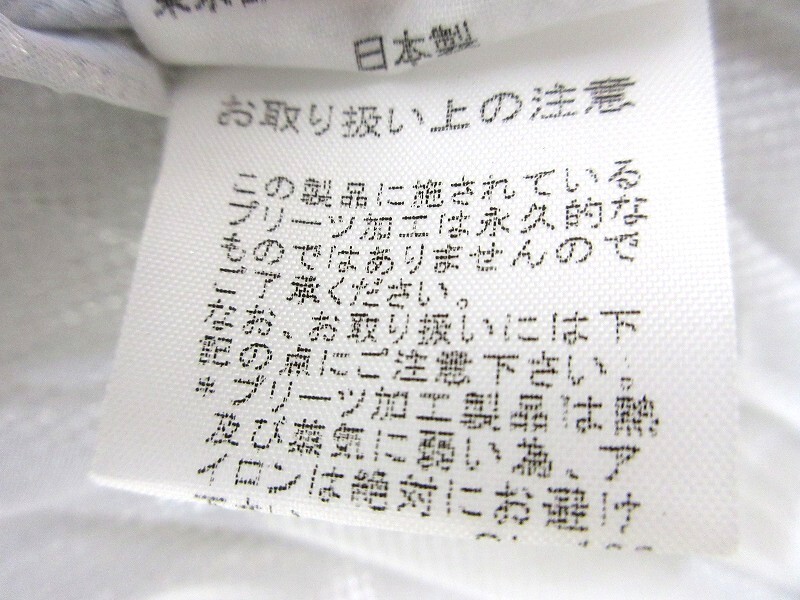 日本製
お取り扱い上の注意
この製品に施されている
プリーツ加工は永久的な
ものではありませんので
ご了承ください。
なお、お取り扱いには下
記の点にご注意下さい。
*プリーツ加工製品は熱
及び蒸気に弱い為、ア
イロンは絶対にお避け